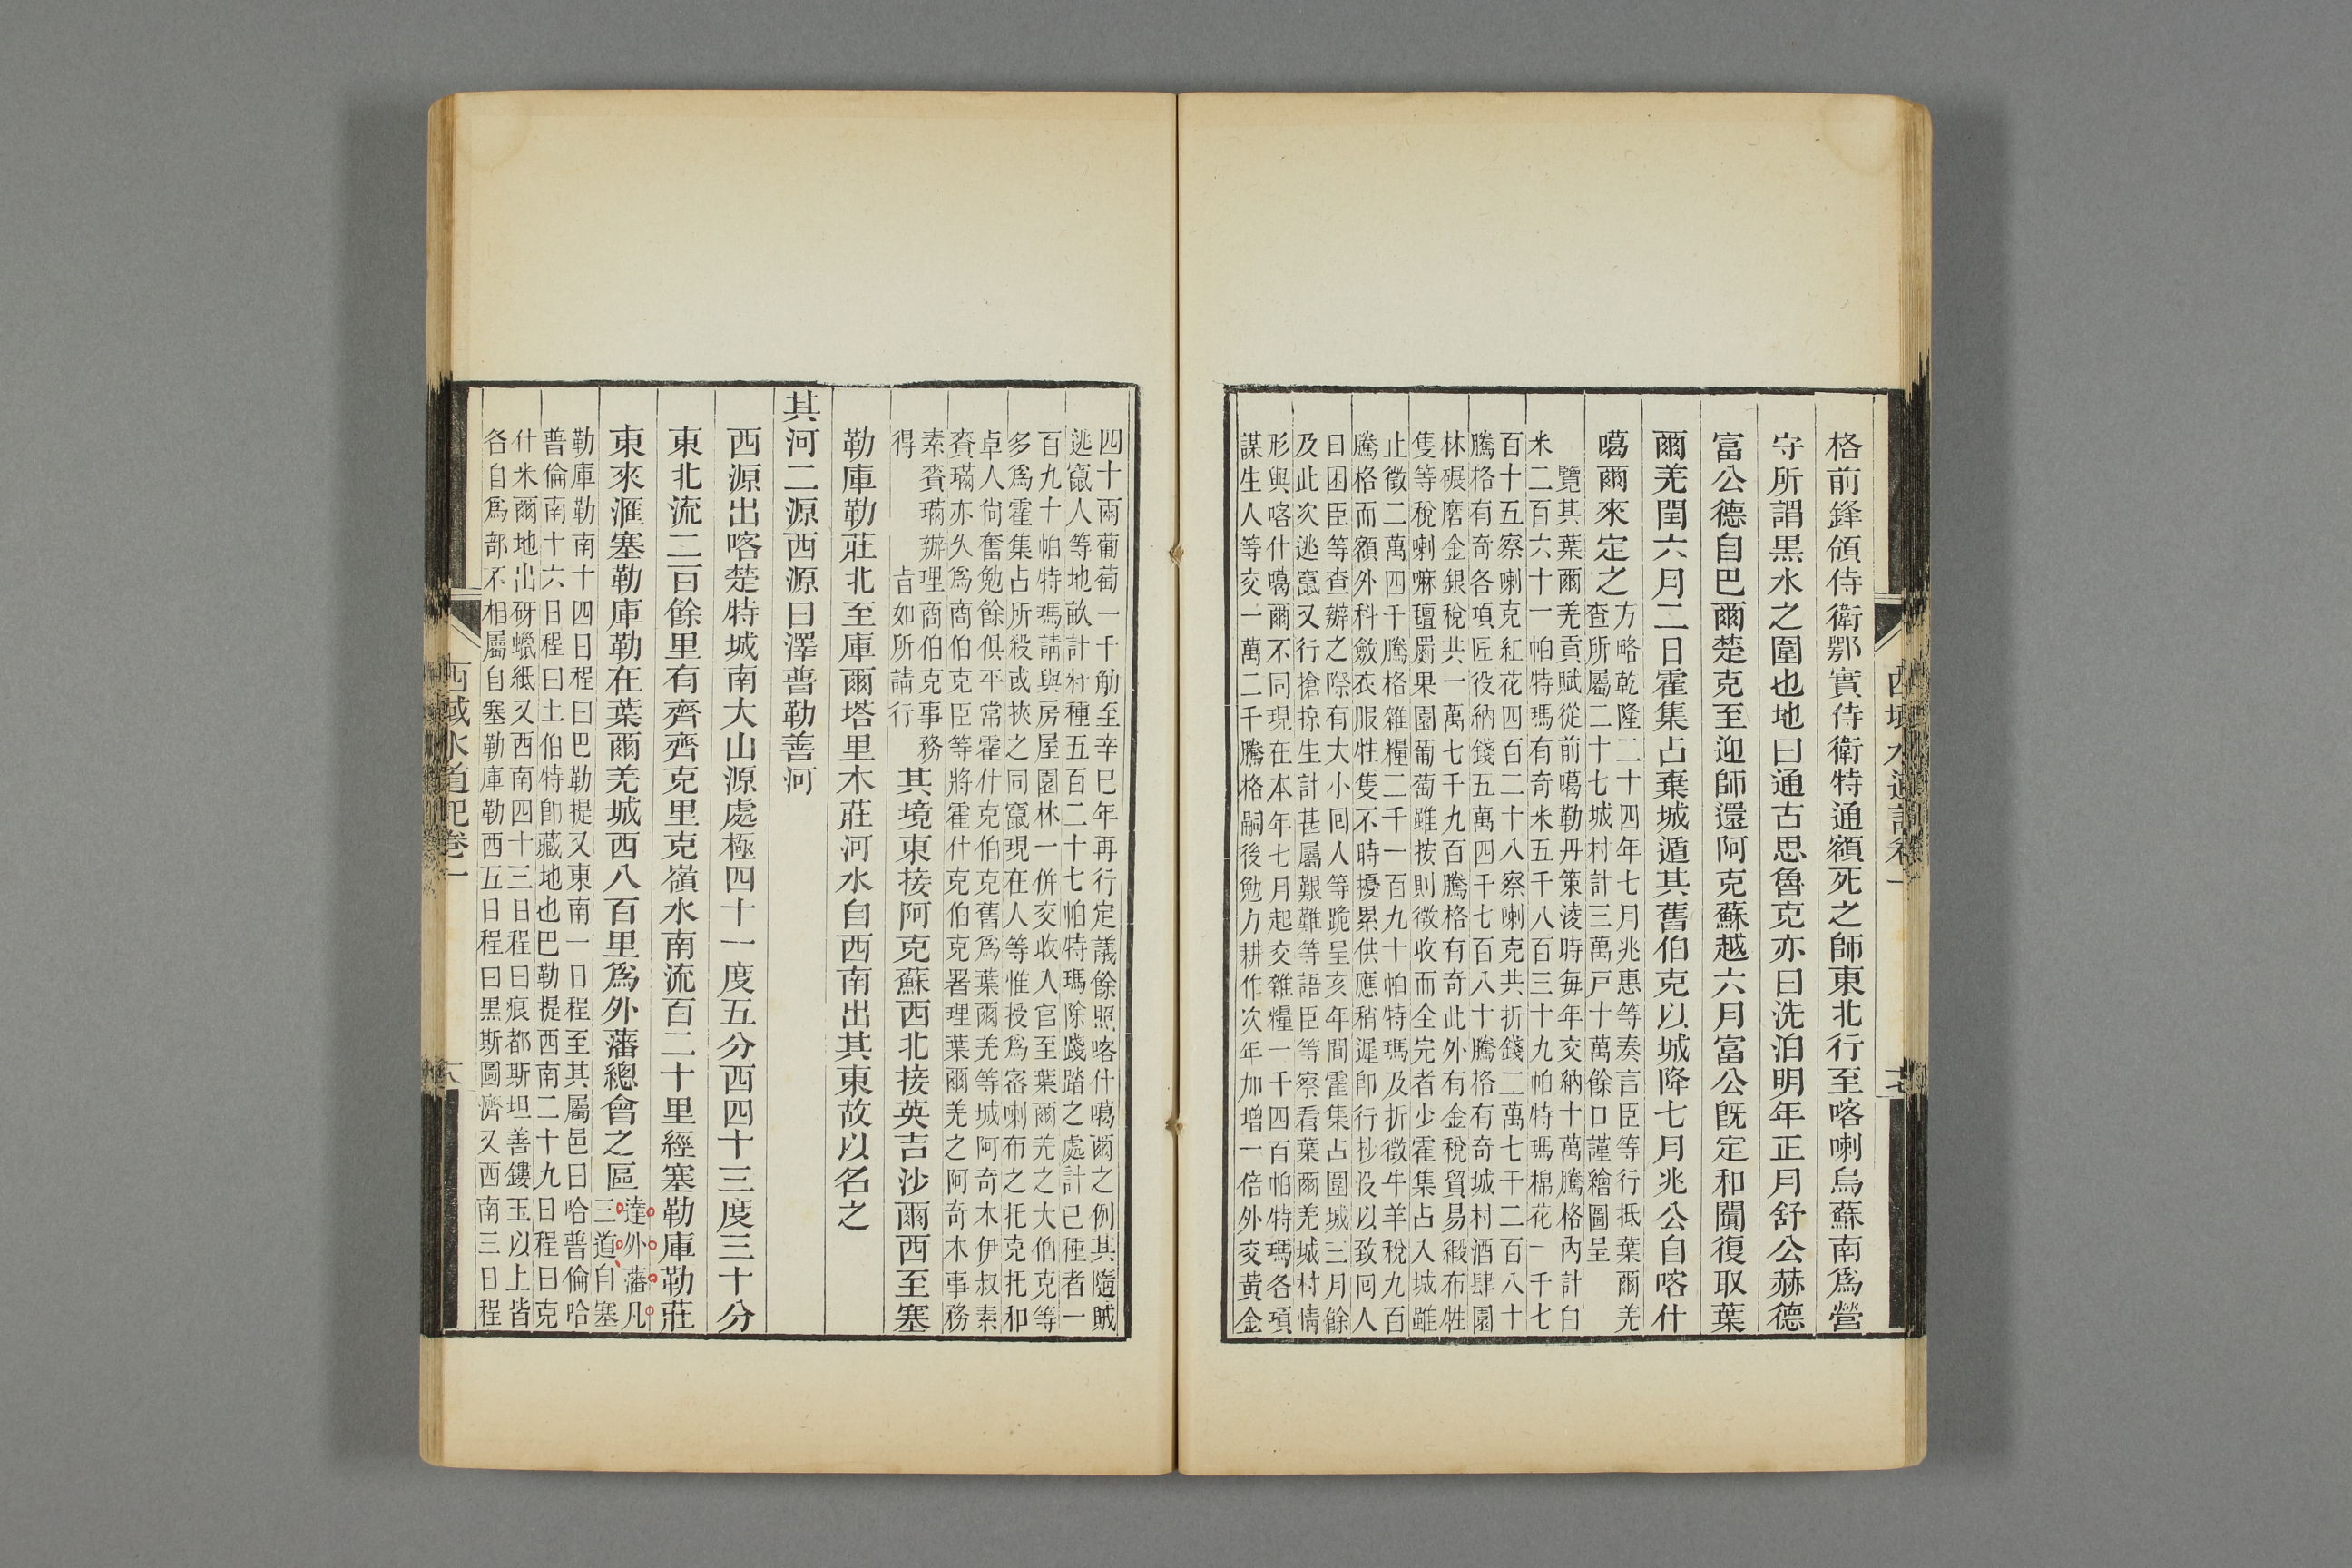 格前鋒頎侍衛鄂實侍衛特通額死之師東北行至喀喇烏蘇南爲營
守所謂黑水之圍也地曰通古思魯克亦曰洗泊明年正月舒公赫德
富公德自巴爾楚克至迎師還阿克蘇越六月富公旣定和闐復取葉
爾羌閏六月二日霍集占棄城遁其舊伯克以城降七月兆公自喀什
噶爾來定之
方略乾隆二十四年七月兆惠等奏言臣等行抵葉爾羌
查所屬二十七城村計三萬戸十萬餘口謹繪圖呈
覽其葉爾羌貢賦從前噶勒丹策淩時每年交納十萬騰格內計白
米二百六十一帕特瑪有奇米五千八百三十九帕特瑪棉花一千七
百十五察喇克紅花四百二十八察喇克共折錢二萬七千二百八十
騰格有奇各項匠役納錢五萬四千七百八十騰格有奇城村酒肆園
林碾磨金銀稅共一萬七千九百騰格有奇此外有金稅貿易緞布牲
隻等稅喇嘛𤩽屬果園葡萄雖按則徵收而全完者少霍集占入城雖
止徵二萬四千騰格雜糧二千一百九十帕特瑪及折徵牛羊稅九百
騰格而額外科斂衣服牲隻不時擾累供應稍遲卽行抄没以致囘人
日困臣等查辦之際有大小囘人等跪呈亥年間霍集占圍城三月餘
及此次逃竄又行搶掠生計甚屬艱難等語臣等察看葉爾羌城村情
形與喀什噶爾不同現在本年七月起交雜糧一千四百帕特瑪各項
謀生人等交一萬二千騰格嗣後勉力耕作次年加增一倍外交黃金
西域水道記卷一
四十兩葡萄一千觔至辛巳年再行定議餘照喀什噶爾之例其隨賊
逃竄人等地畝計籽種五百二十七帕特瑪除踐踏之處計已種者一
百九十帕特瑪請與房屋園林一併交收入官至葉爾羌之大伯克等
多爲霍集占所殺或挾之同竄現在人等惟授爲密喇布之托克托和
卓人尙奮勉餘俱平常霍什克伯克舊爲葉爾羌等城阿奇木伊叔素
賚璊亦久爲商伯克臣等將霍什克伯克署理葉爾羌之阿奇木事務
素賚璊辦理商伯克事務
得
旨如所請行
其境東接阿克蘇西北接英吉沙爾西至塞
勒庫勒莊北至庫爾塔里木莊河水自西南出其東故以名之
其河二源西源曰澤普勒善河
西源出喀楚特城南大山源處極四十一度五分西四十三度三十分
東北流二百餘里有齊齊克里克嶺水南流百二十里經塞勒庫勒莊
東來滙塞勒庫勒在葉爾羌城西八百里爲外藩總會之區
達外藩凡
三道自塞
勒庫勒南十四日程曰巴勒提又東南一日程至其屬邑曰哈普倫哈
普倫南十六日程曰土伯特卽藏地也巴勒提西南二十九日程曰克
什米爾地出砑蠟紙又西南四十三日程曰痕都斯坦善鏤玉以上皆
各自爲部不相屬自塞勒庫勒西五日程曰黑斯圖濟又西南三日程
西域水道記卷一
六